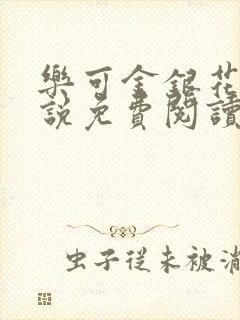 樂可金銀花
說免費閱讀
虫子從未被消